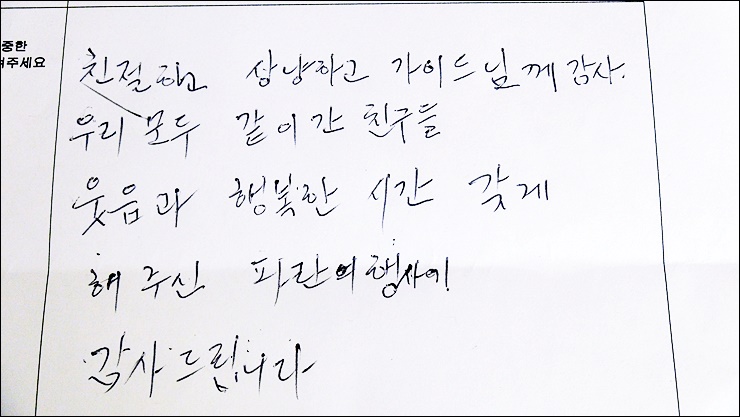 중한
주세요
친절하고 상냥하고 가이드님께 감사.
우리 모두 같이간 친구들
웃음과 행복한 시간 갖게
해 주신 파란여행사에!
감사드립니다